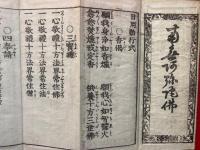 南無阿彌陀佛
日用勤行式
○香偈
願我身淨如香爐
願我心如智慧火
念念焚燒戒定香
供養十方三世佛
○三寶禮
一心敬禮十方法界常住佛
一心敬禮十方法界常住法
一心敬禮十方法界常住僧
○四奉請